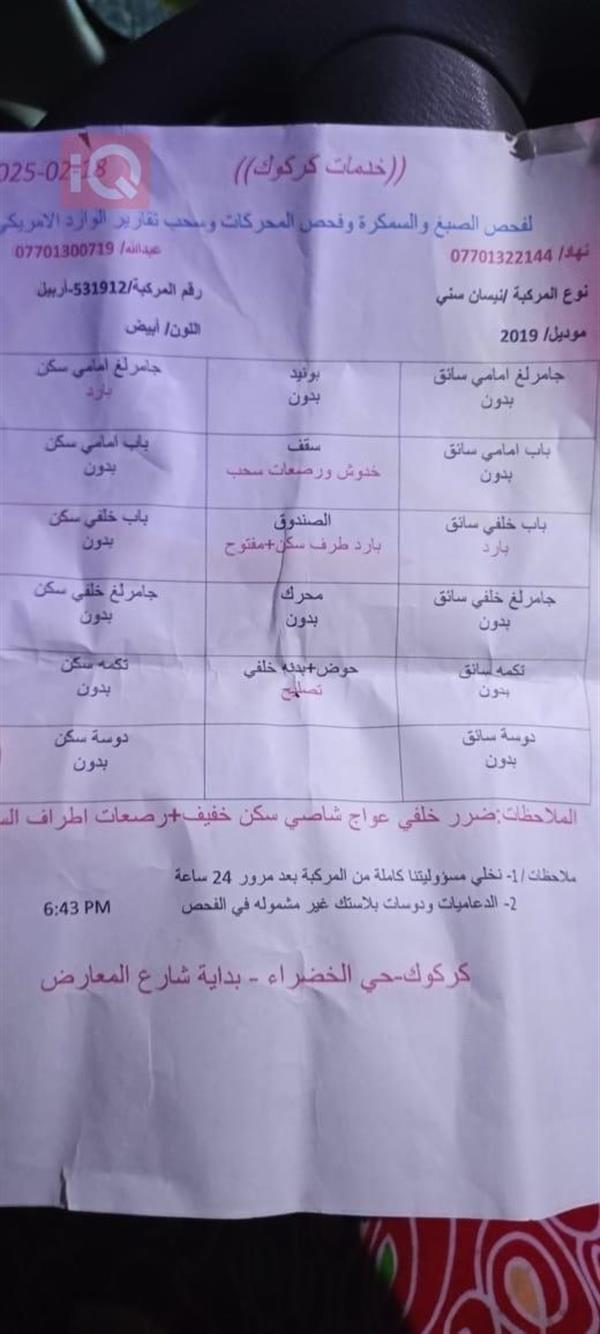 ((خدمات كركوك)) 025-02-18
IQ
لفحص الصبغ والسمكرة وفحص المحركات وسحب تقارير الوارد الامريكي
نهاد/ 07701322144 عبدالله/ 07701300719
نوع المركبة /نيسان سني رقم المركبة/531912-أربيل
موديل/ 2019 اللون/ أبيض
جامرلغ امامي سائق بونيد جامرلغ امامي سكن
بدون بدون بارد
باب امامي سائق سقف باب امامي سكن
بدون خدوش ورصعات سحب بدون
باب خلفي سائق الصندوق باب خلفي سكن
بارد بارد طرف سكن+مفتوح بدون
جامرلغ خلفي سائق محرك جامرلغ خلفي سكن
بدون بدون بدون
تكمه سائق حوض+بدنه خلفي تكمه سكن
بدون تصليح بدون
دوسة سائق دوسة سكن
بدون بدون
الملاحظات:ضرر خلفي عواج شاصي سكن خفيف+رصعات اطراف
ملاحظات/ 1- نخلي مسؤوليتنا كاملة من المركبة بعد مرور 24 ساعة
2- الدعاميات ودوسات بلاستك غير مشموله في الفحص 6:43 PM
كركوك-حي الخضراء - بداية شارع المعارض